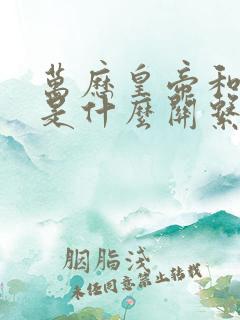 萬歷皇帝和
是什麼關繫
胭脂淺
未经同意禁止转载